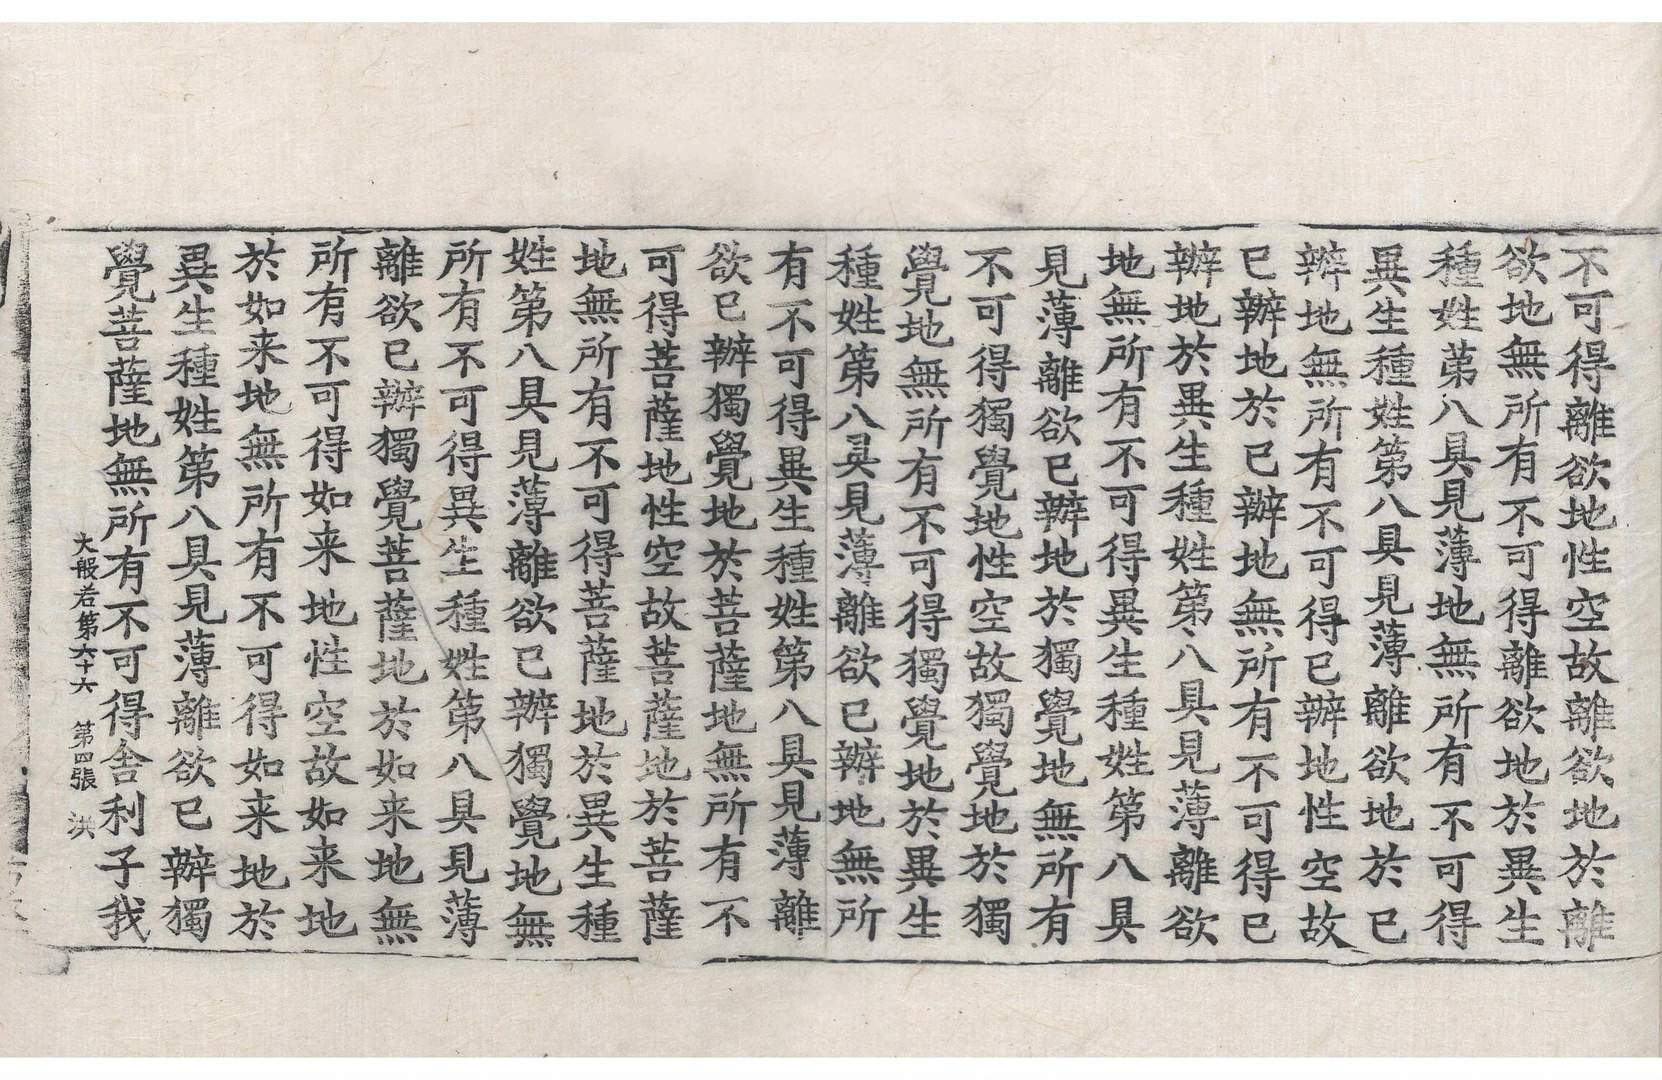 不可得離欲地性空故離欲地於離
欲地無所有不可得離欲地於異生
種姓第八具見薄地無所有不可得
異生種姓第八具見薄離欲地於已
辦地無所有不可得已辦地性空故
已辦地於已辦地無所有不可得已
辦地於異生種姓第八具見薄離欲
地無所有不可得異生種姓第八具
見薄離欲已辦地於獨覺地無所有
不可得獨覺地性空故獨覺地於獨
覺地無所有不可得獨覺地於異生
種姓第八具見薄離欲已辦地無所
有不可得異生種姓第八具見薄離
欲已辦獨覺地於菩薩地無所有不
可得菩薩地性空故菩薩地於菩薩
地無所有不可得菩薩地於異生種
姓第八具見薄離欲已辦獨覺地無
所有不可得異生種姓第八具見薄
離欲已辦獨覺菩薩地於如来地無
所有不可得如来地性空故如来地
於如来地無所有不可得如来地於
異生種姓第八具見薄離欲已辦獨
覺菩薩地無所有不可得舍利子我
大般若第六十六 第四張 洪